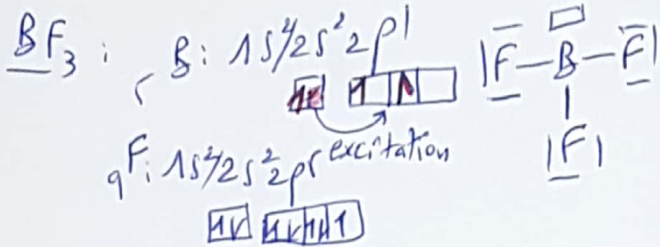 BF₃ : ₅B: 1s²/2s²2p¹
|F — B — F|
excitation
₉F: 1s²/2s²2p⁵
|F|